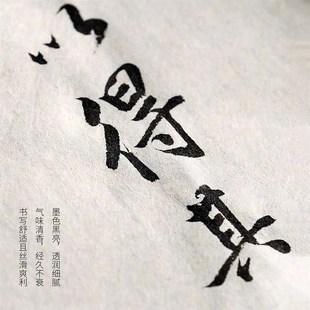 以得其
墨色黑亮，透润细腻
气味清香，经久不衰
书写舒适且丝滑爽利